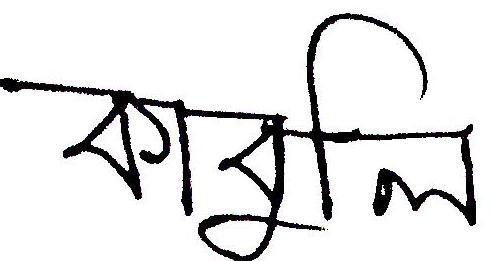 কাবুলি